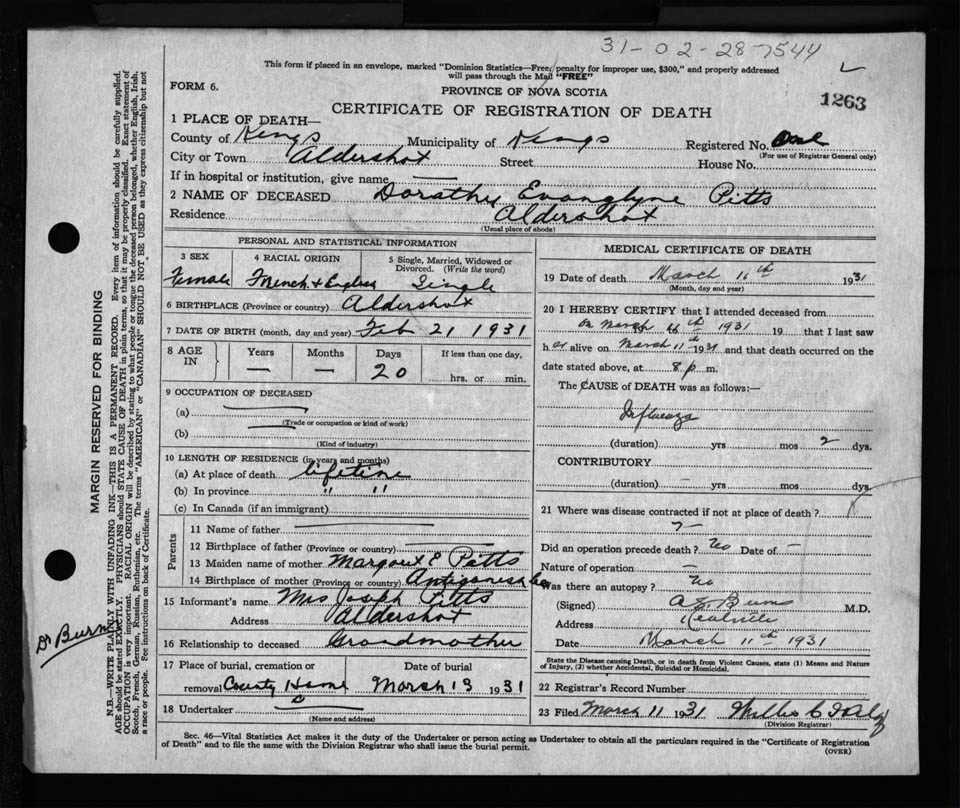 31-02-28-7544
This form if placed in an envelope, marked "Dominion Statistics—Free, penalty for improper use, $300," and properly addressed
will pass through the Mail "FREE"
FORM 6.
PROVINCE OF NOVA SCOTIA
1263
CERTIFICATE OF REGISTRATION OF DEATH
1 PLACE OF DEATH—
County of Kings Municipality of Kings Registered No. One
(For use of Registrar General only)
City or Town Aldershot Street House No.
If in hospital or institution, give name —
2 NAME OF DECEASED Dorathy Evanglyne Pitts
Residence Aldershot
(Usual place of abode)
PERSONAL AND STATISTICAL INFORMATION
3 SEX 4 RACIAL ORIGIN 5 Single, Married, Widowed or
Divorced. (Write the word)
Female French & English Single
6 BIRTHPLACE (Province or country) Aldershot
7 DATE OF BIRTH (month, day and year) Feb 21 1931
8 AGE IN Years Months Days If less than one day,
— — 20 hrs. or min.
9 OCCUPATION OF DECEASED
(a) —
(Trade or occupation or kind of work)
(b) —
(Kind of industry)
10 LENGTH OF RESIDENCE (in years and months)
(a) At place of death lifetime
(b) In province " "
(c) In Canada (if an immigrant)
Parents
11 Name of father —
12 Birthplace of father (Province or country) —
13 Maiden name of mother Margaret E Pitts
14 Birthplace of mother (Province or country) Antigonish Co
15 Informant's name Mrs Joseph Pitts
Address Aldershot
16 Relationship to deceased Grandmother
17 Place of burial, cremation or Date of burial
removal County Home March 13 1931
18 Undertaker
(Name and address)
MEDICAL CERTIFICATE OF DEATH
19 Date of death March 11th 1931
(Month, day and year)
20 I HEREBY CERTIFY that I attended deceased from
on March 11th 1931 19 that I last saw
h er alive on March 11th 1931 and that death occurred on the
date stated above, at 8 p m.
The CAUSE of DEATH was as follows:—
Influenza
(duration) yrs mos 2 dys.
CONTRIBUTORY
(duration) — yrs mos dys.
21 Where was disease contracted if not at place of death?
Did an operation precede death? No Date of —
Nature of operation —
Was there an autopsy? No
(Signed) A.E. Burns M.D.
Address Kentville
Date March 11th 1931
State the Disease causing Death, or in death from Violent Causes, state (1) Means and Nature
of Injury, (2) whether Accidental, Suicidal or Homicidal.
22 Registrar's Record Number
23 Filed March 11 1931
(Division Registrar)
Sec. 46—Vital Statistics Act makes it the duty of the Undertaker or person acting as Undertaker to obtain all the particulars required in the "Certificate of Registration
of Death" and to file the same with the Division Registrar who shall issue the burial permit.
(OVER)
MARGIN RESERVED FOR BINDING
N.B.—WRITE PLAINLY WITH UNFADING INK—THIS IS A PERMANENT RECORD. Every item of information should be carefully supplied.
AGE should be stated EXACTLY. PHYSICIANS should STATE CAUSE OF DEATH in plain terms, so that it may be properly classified. Exact statement of
OCCUPATION is very important. RACIAL ORIGIN will be described by stating to what people or tongue the deceased person belonged, whether English, Irish,
Scotch, French, German, Russian, Ruthenian, etc. The terms "AMERICAN" or "CANADIAN" SHOULD NOT BE USED as they express citizenship but not
a race or people. Fee instructions on back of Certificate.
Dr Burns